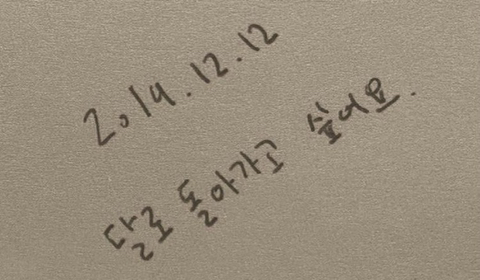 2019.12.12
달로 돌아가고 싶어요.